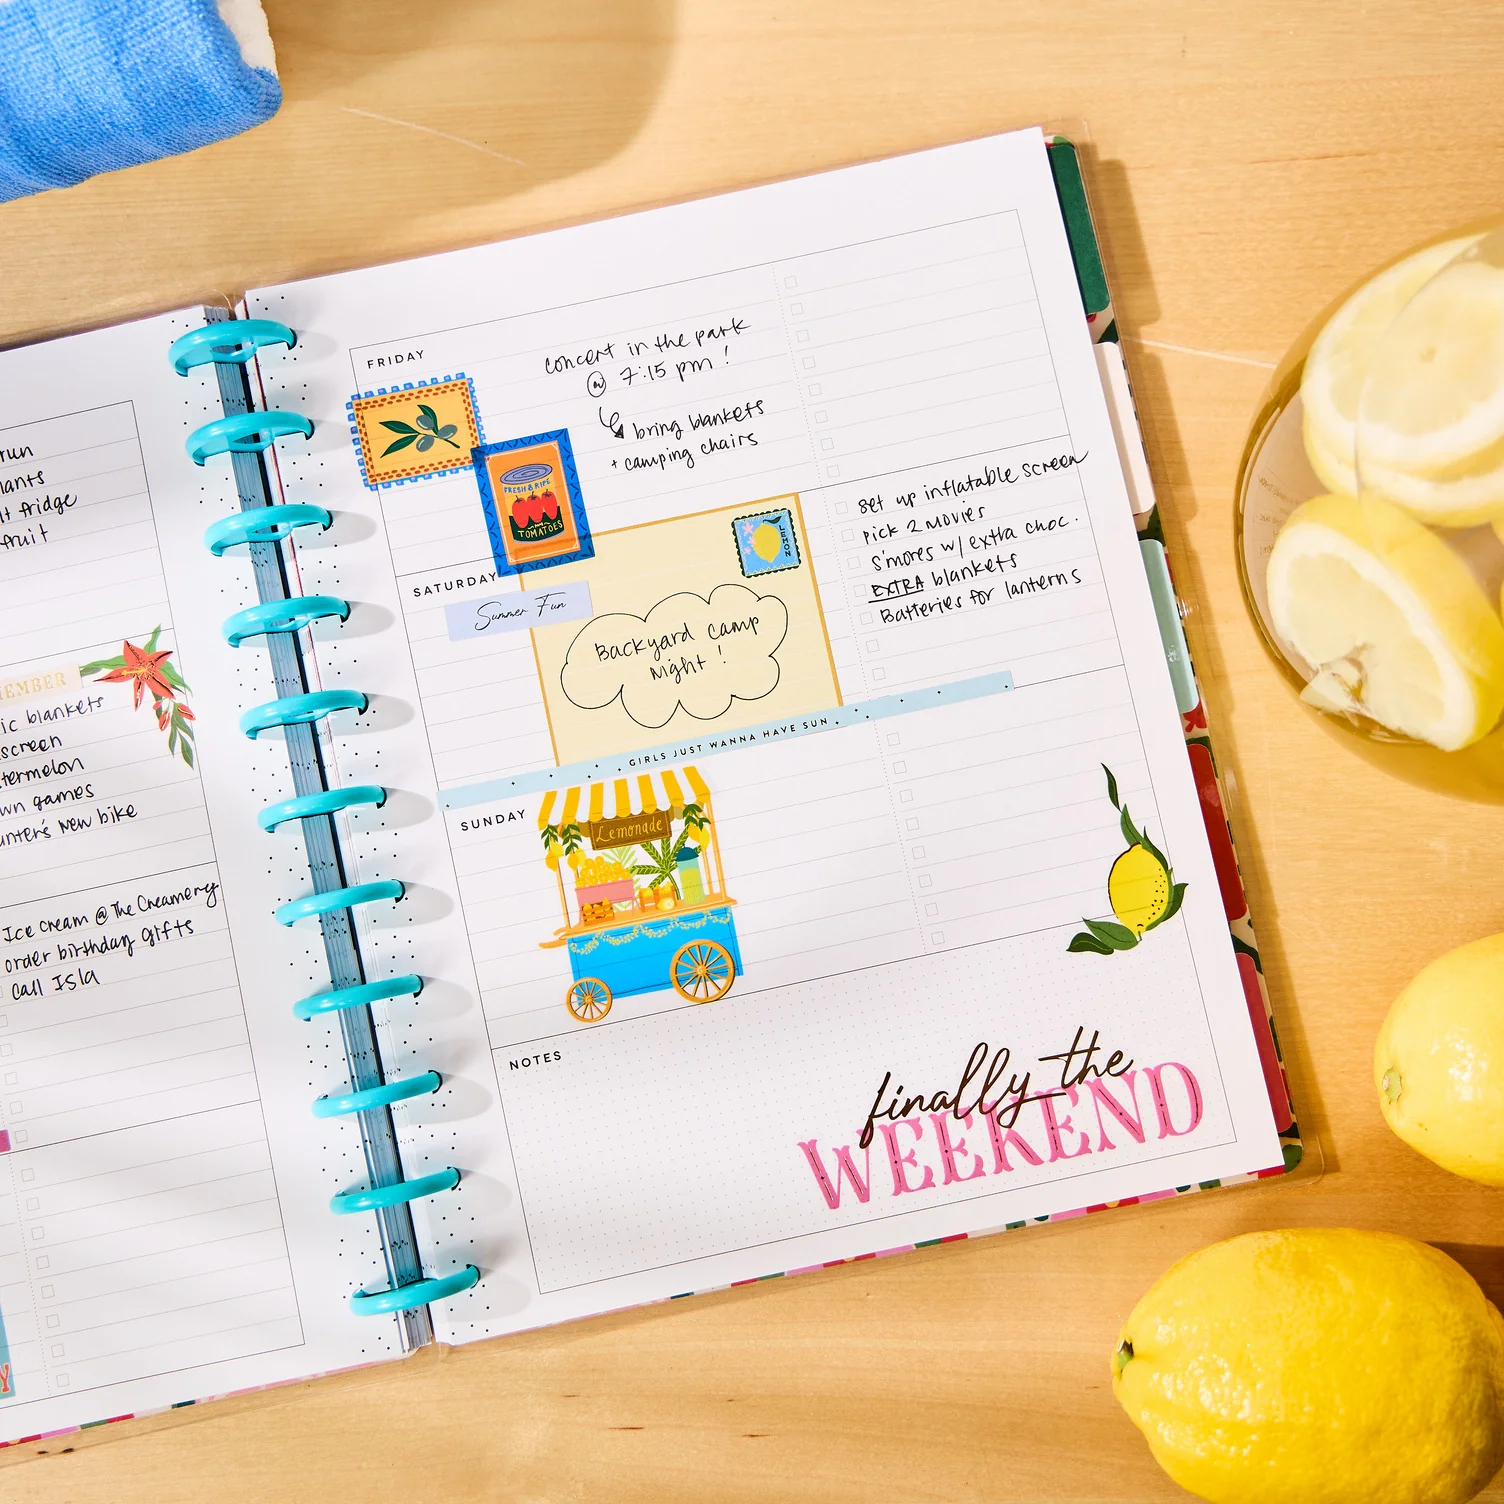 run
lt fridge
fruit
blankets
screen
games
new bike
Ice cream @ The Creamery
order birthday gifts
call Isla
FRIDAY
concert in the park
@ 7:15 pm !
bring blankets
+ camping chairs
FRESH & RIPE
TOMATOES
SATURDAY
Summer Fun
LEMON
Backyard camp
night !
set up inflatable screen
pick 2 movies
s'mores w/ extra choc.
EXTRA blankets
Batteries for lanterns
GIRLS JUST WANNA HAVE SUN
SUNDAY
Lemonade
NOTES
finally the
WEEKEND